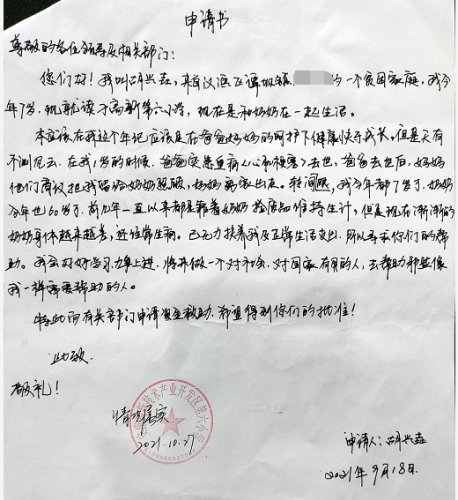 申请书
尊敬的各位领导及相关部门：
您们好！我叫胡兴垚，来自汉滨飞谭坝镇 的一个贫困家庭，我今
年7岁，现就读于高新第六小学，现在是和奶奶在一起生活。
本应该在我这个年纪应该是在爸爸妈妈的呵护下健康快乐成长，但是天有
不测风云，在我1岁的时候，爸爸突患重病《心肌梗塞》去世，爸爸去世后，妈妈
他们商议把我留给奶奶照顾，妈妈离家出走。转间，我今年都7岁了，奶奶
今年也60岁了，前几年一直以来都是靠着奶奶捡废品维持生计，但是现在渐渐的
奶奶身体越来越差，还经常生病。已无力扶养我及正常生活支出，所以寻求你们的帮
助。我会好好学习，力争上进，将来做一个对社会，对国家有用的人，去帮助那些像
我一样需要帮助的人。
特此向有关部门申请资金救助，希望得到你们的批准！
此致
敬礼！
情况属实
技术产业开发区第六小学
2021.10.27
申请人：胡兴垚
2021年9月18日